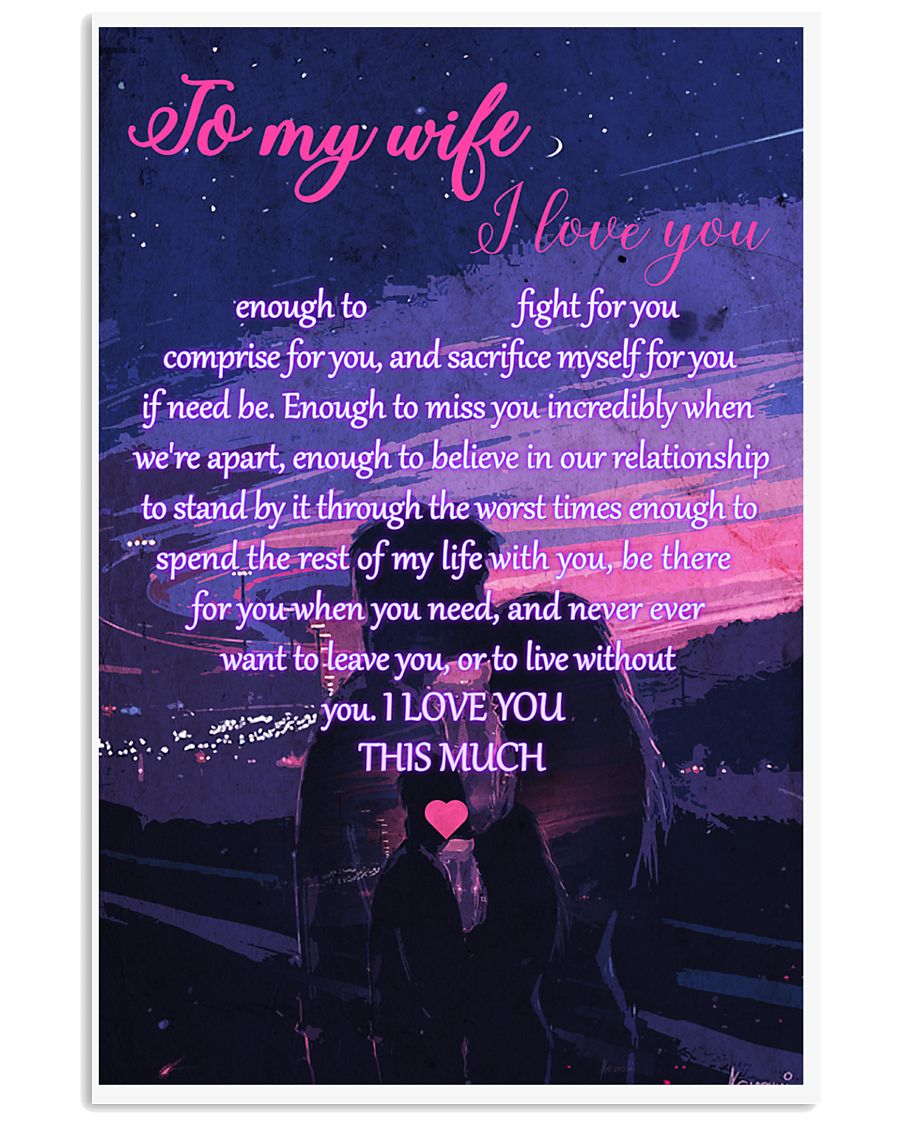 To my wife
I love you
enough to fight for you
comprise for you, and sacrifice myself for you
if need be. Enough to miss you incredibly when
we're apart, enough to believe in our relationship
to stand by it through the worst times enough to
spend the rest of my life with you, be there
for you when you need, and never ever
want to leave you, or to live without
you. I LOVE YOU
THIS MUCH